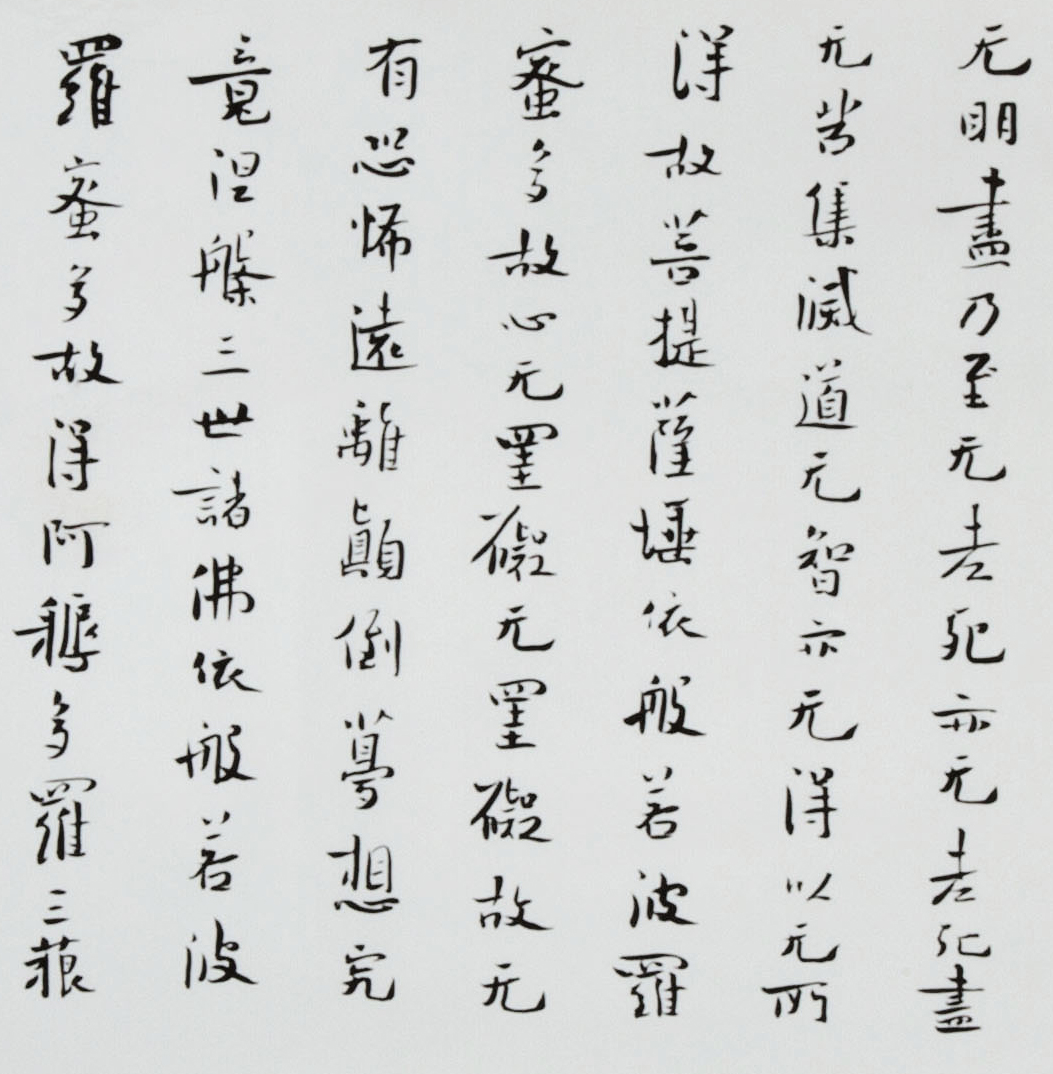 无明盡乃至无老死亦无老死盡
无苦集滅道无智亦无得以无所
得故菩提薩埵依般若波羅
蜜多故心无罣礙无罣礙故无
有恐怖遠離顛倒夢想究
竟涅槃三世諸佛依般若波
羅蜜多故得阿耨多羅三藐